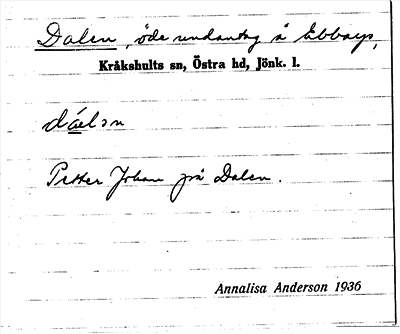 Dalen, öde undantag å Ebbarp,
Kråkshults sn, Östra hd, Jönk. l.
dáelən
Petter Johan på Dalen.
Annalisa Anderson 1936